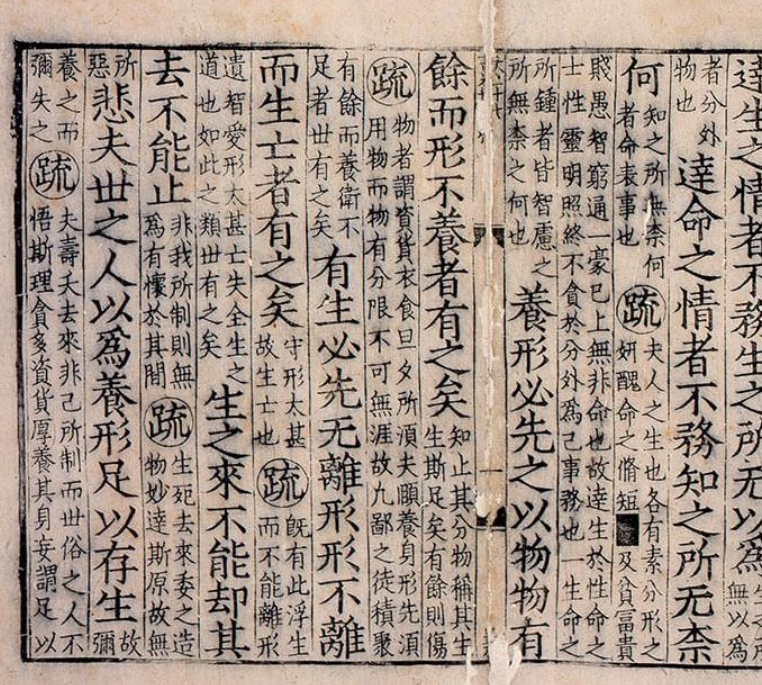 達生之情者不務生之所无以為無以為
者分外物也達命之情者不務知之所无柰
何知之所無柰何者命表事也疏夫人之生也各有素分形之妍醜命之脩短及貧富貴
賤愚智窮通一豪已上無非命也故達生於性命之士性靈明照終不貪於分外為己事務也一生命之
所鍾者皆智慮之所無柰之何也養形必先之以物物有
餘而形不養者有之矣知止其分物稱其生生斯足矣有餘則傷
疏物者謂資貨衣食旦夕所湏夫頤養身形先湏用物而物有分限不可無涯故九鄙之徒積聚
有餘而養衛不足者世有之矣有生必先无離形形不離
而生亡者有之矣守形太甚故生亡也疏既有此浮生而不能離形
遺智愛形太甚亡失全生之道也如此之類世有之矣生之來不能却其
去不能止非我所制則無為有懷於其間疏生死去來委之造物妙達斯原故無
所惡悲夫世之人以為養形足以存生故彌
養之而彌失之疏夫壽夭去來非己所制而世俗之人不悟斯理貪多資貨厚養其身妄謂足以